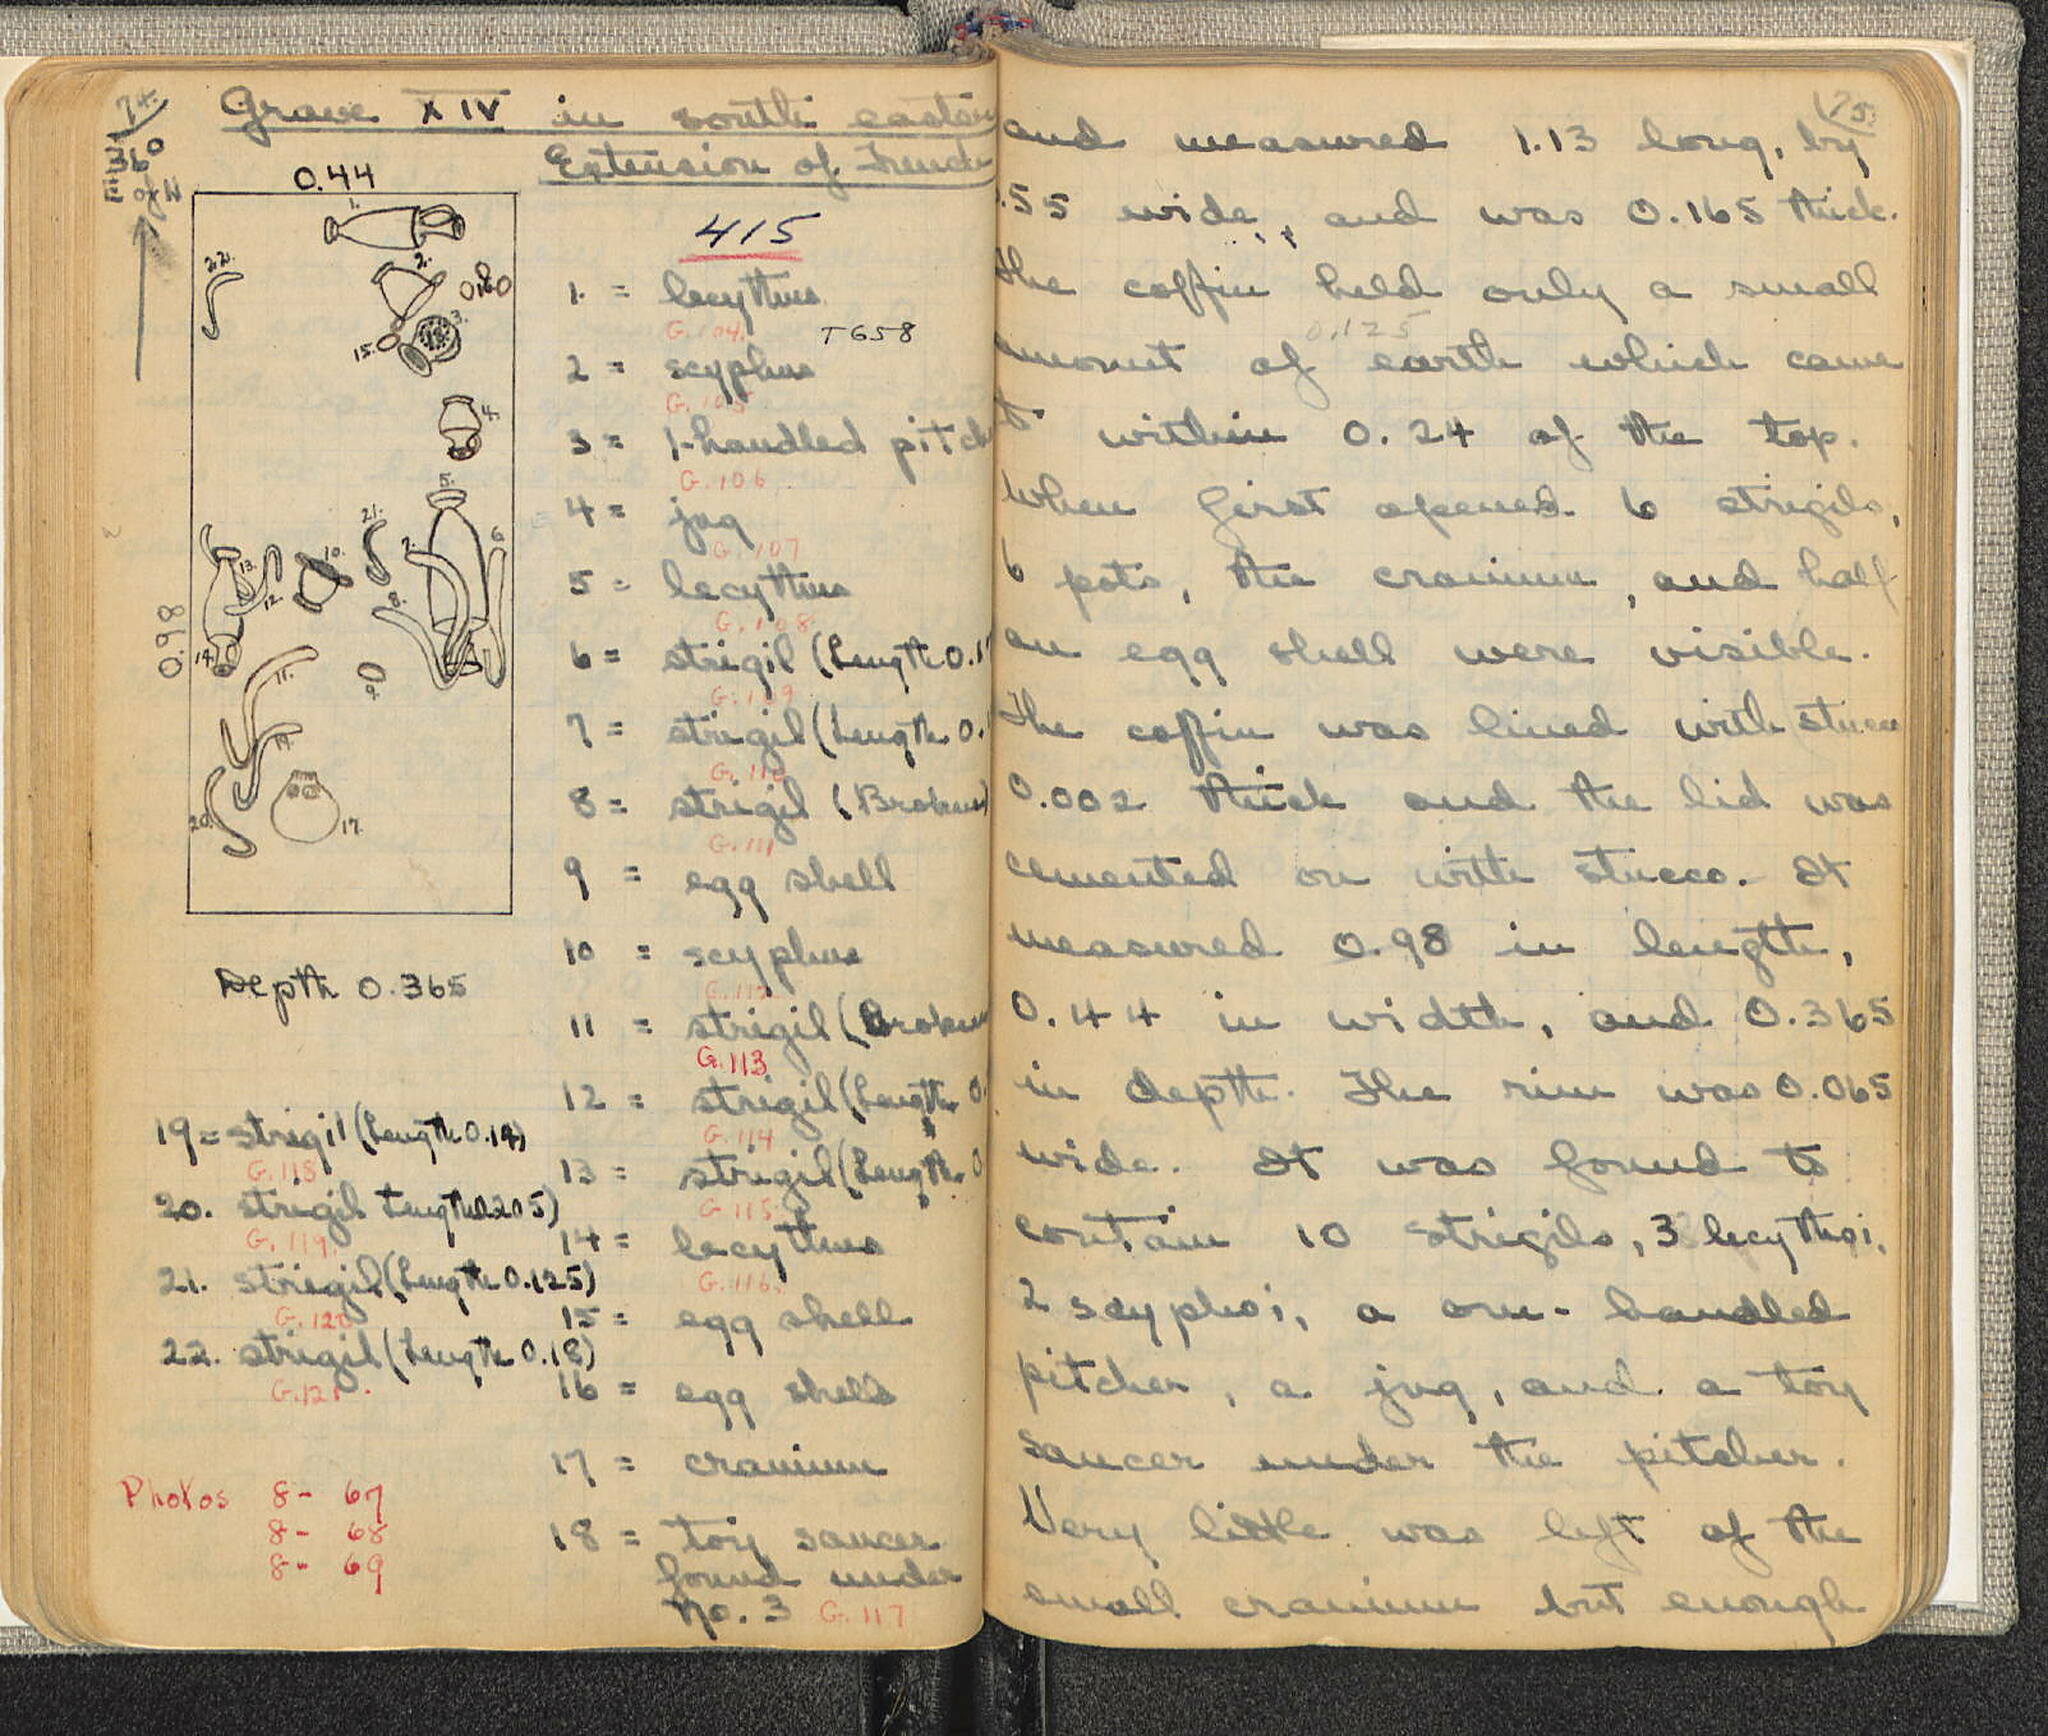 74.
Grave XIV in south eastern
Extension of Trench
415
0.44
0.98
1.
2.
22.
16
3.
15.
4.
5.
21.
7.
6.
10.
13.
12.
8.
14.
11.
9.
19.
20.
17.
Depth 0.365
1. = lecythus
G.104. T658
2 = scyphus
G.105
3 = 1-handled
G.106
4 = jug
G.107
5 = lecythus
G.108
6 = strigil (Length
G.109
7 = strigil (Length
G.110
8 = strigil (Broken)
G.111
9 = egg shell
10 = scyphus
G.112
11 = strigil (Broken
G.113
12 = strigil (Length
G.114
13 = strigil (Length
G.115
14 = lecythus
G.116.
15 = egg shell
16 = egg shell
17 = cranium
18 = toy saucer
found under
No. 3 G.117
19 = strigil (Length 0.19)
G.118
20. strigil Length 0.205)
G.119.
21. strigil (Length 0.125)
G.120
22. strigil (Length 0.18)
G.121.
Photos 8- 67
8- 68
8- 69
75.
and measured 1.13 long, by
.55 wide, and was 0.165 thick.
The coffin held only a small
0.125
amount of earth which came
to within 0.24 of the top.
When first opened 6 strigils,
6 pots, the cranium, and half
an egg shell were visible.
The coffin was lined with stucco
0.002 thick and the lid was
cemented on with stucco. It
measured 0.98 in length,
0.44 in width, and 0.365
in depth. The rim was 0.065
wide. It was found to
contain 10 strigils, 3 lecythoi,
2 scyphoi, a one-handled
pitcher, a jug, and a toy
saucer under the pitcher.
Very little was left of the
small cranium but enough